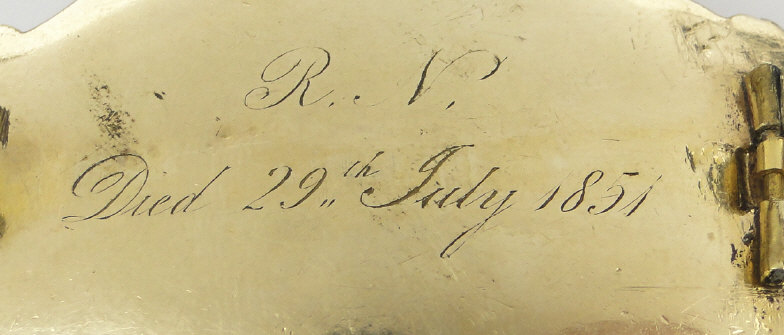 R. N.
Died 29th July 1851